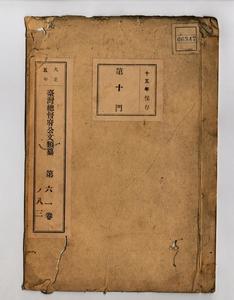 大正
五年
臺灣總督府公文類纂
第六一卷
ノ八二
十五年保存
第十門